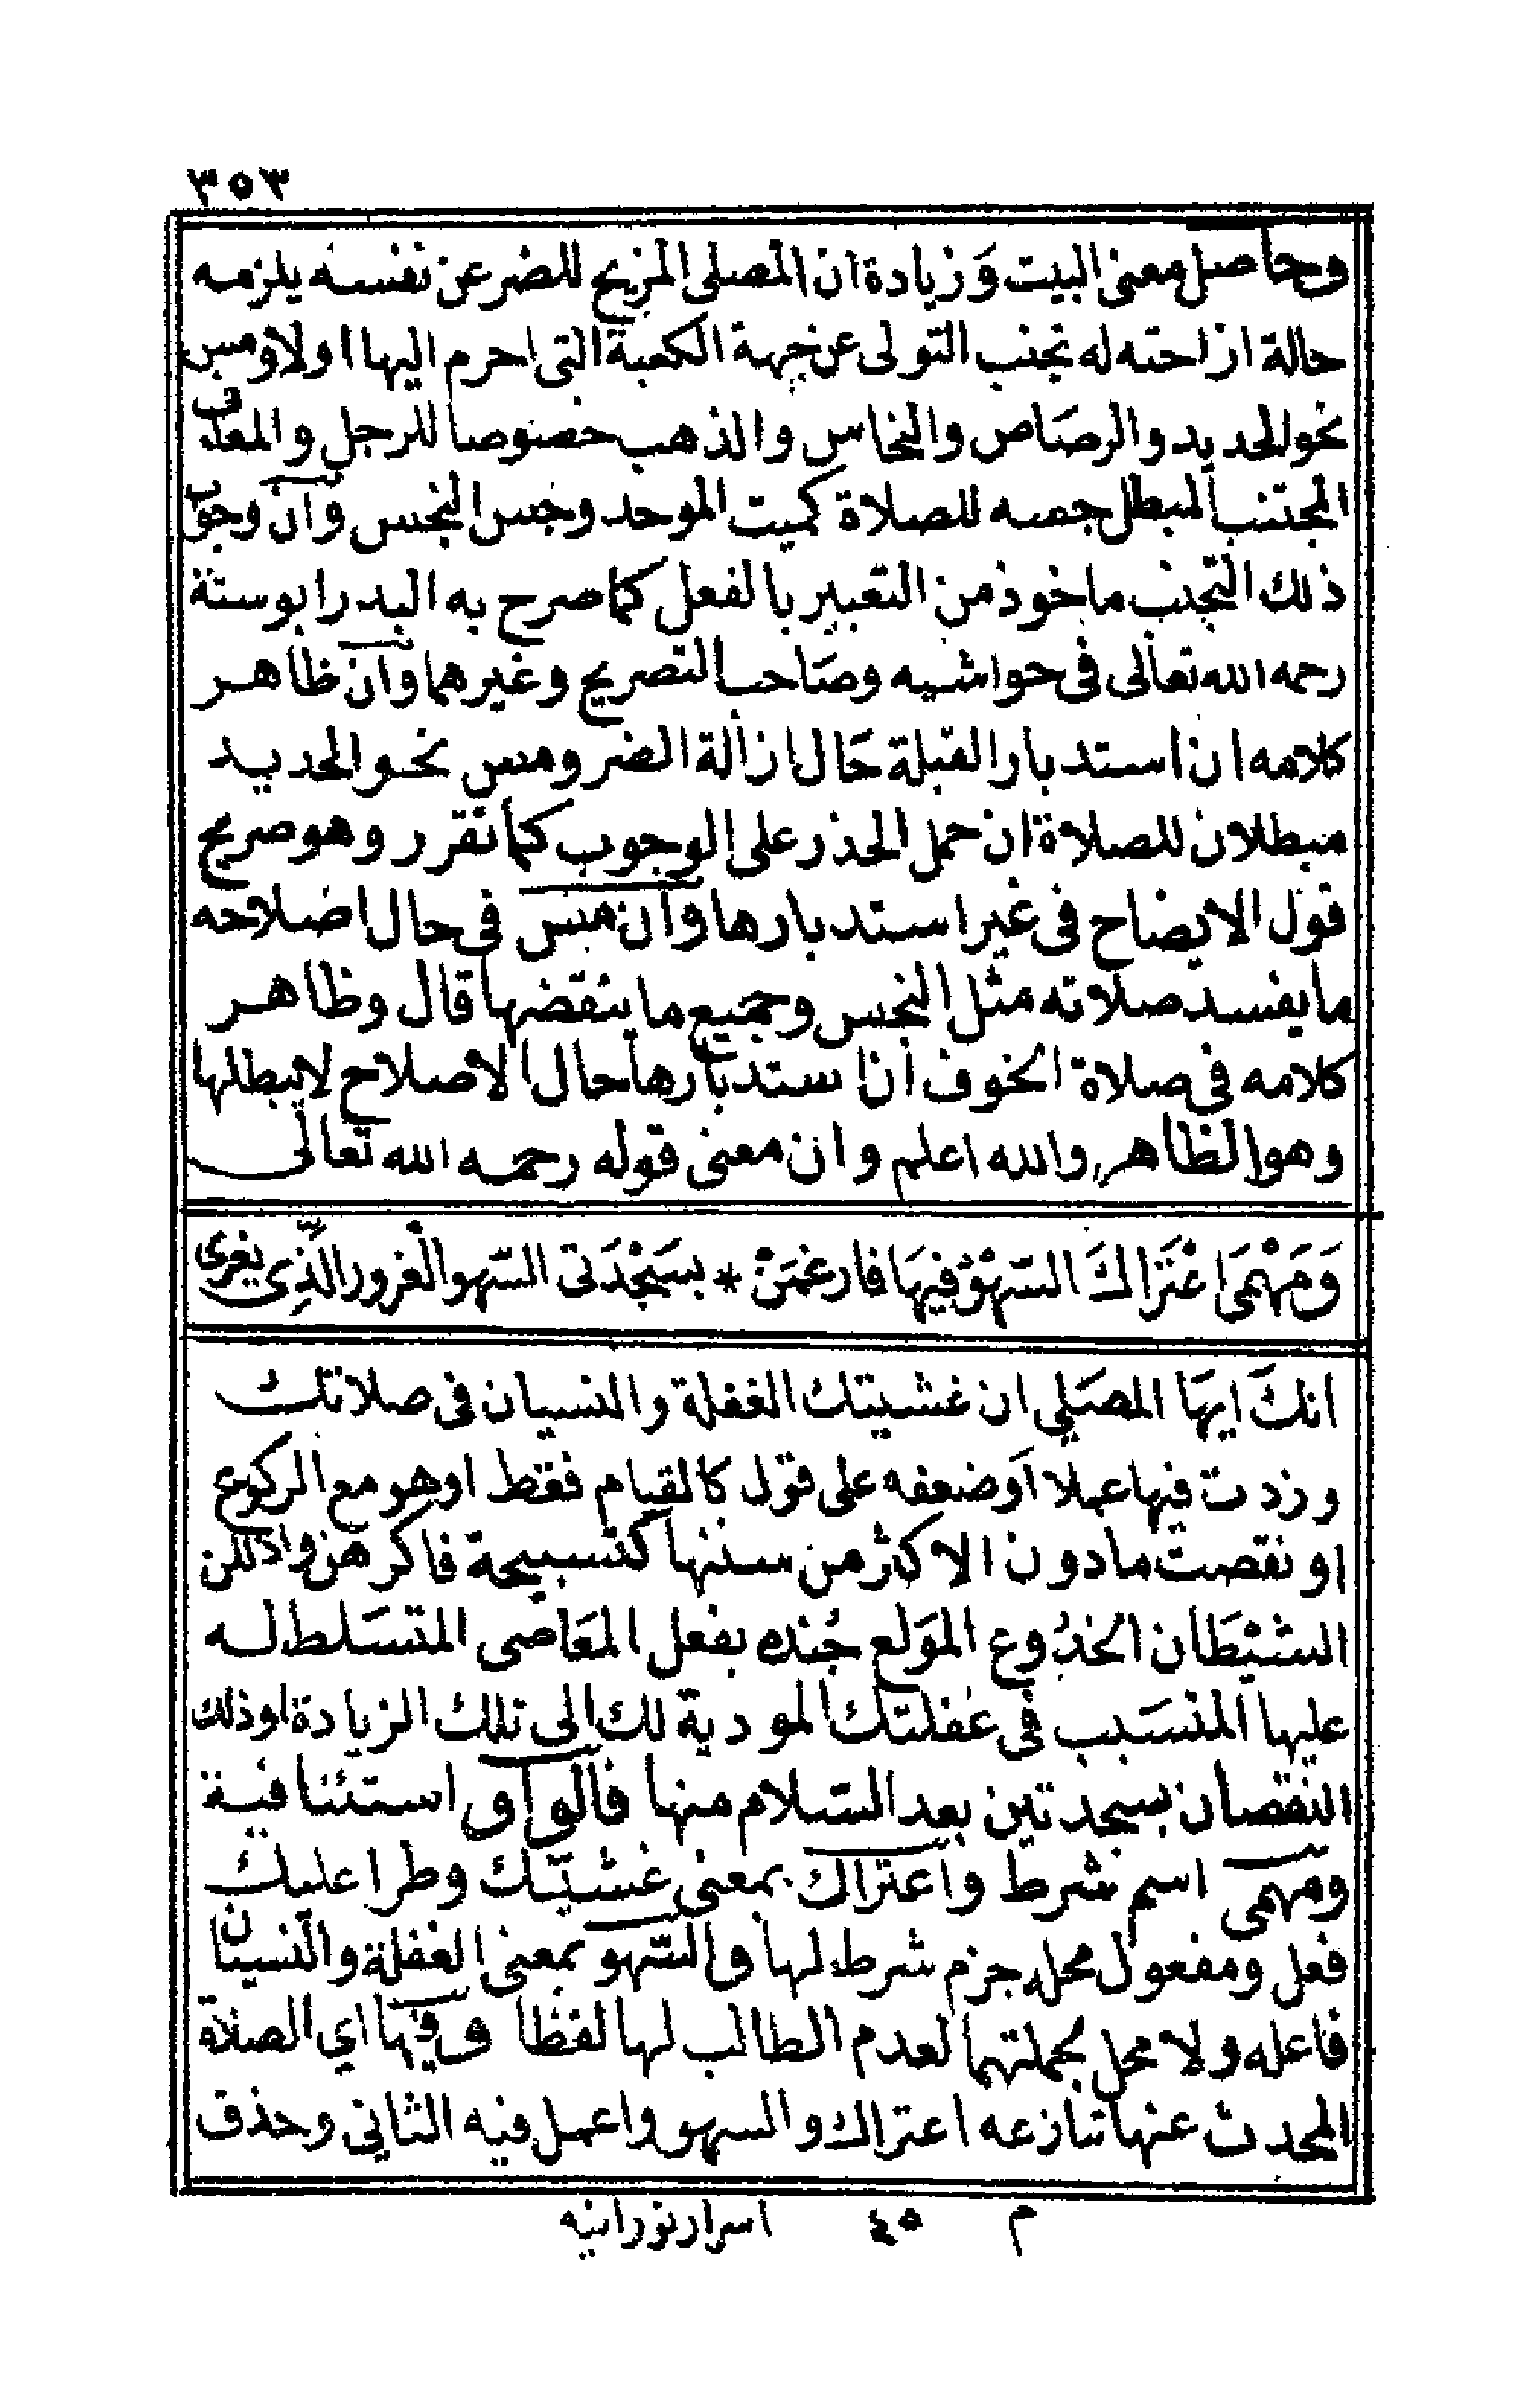 ٣٥٣
وحاصل معنى البيت وزيادة ان المصلى المزيح للضر عن نفسه يلزمه
حالة ازاحته له تجنب التولى عن جهة الكعبة التى احرم اليها اولا ومس
نحو الحديد والرصاص والنحاس والذهب خصوصا للرجل والمعادن
المجتنب المبطل جمسه للصلاة كميت الموحد وجس النجس وان وجوب
ذلك التجنب ماخوذ من التعبير بالفعل كما صرح به البدر ابو ستة
رحمه الله تعالى فى حواشيه وصاحب التصريح وغيرهما وان ظاهر
كلامه ان استدبار القبلة حال ازالة الضر ومس نحو الحديد
مبطلان للصلاة ان حمل الحذر على الوجوب كما تقرر وهو صريح
قول الايضاح فى غير استدبارها وان مس فى حال اصلاحه
ما يفسد صلاته مثل النجس وجميع ما ينقضها قال وظاهر
كلامه فى صلاة الخوف ان استدبارها حال الاصلاح لا يبطلها
وهو الظاهر والله اعلم وان معنى قوله رحمه الله تعالى
وَمَهْمَى اعْتَرَاكَ السَّهْوُ فِيهَا فارغمَنْ * بسَجْدَتى السّهو الغرور الَّذِى يغرى
انكَ ايهَا المصَلي ان غشيتك الغفلة والنسيان فى صلاتك
وزدت فيها عملا اَو ضعفه على قول كالقيام فقط او هو مع الركوع
او نقصت ما دون الاكثر من سننها كتسبيحة فاكرهن واذللن
الشيْطَان الخدُوع الموَلع جُنده بفعل المعَاصى المتسَلط له
عليها المتسَبب فى غفلتك المودية لك الى تلك الزيادة او ذلك
النقصان بسجدتين بعد السّلام منها فالواو استئنافية
ومهمى اسم شرط واعتراك بمعنى غشيتك وطرا عليك
فعل ومفعول محله جزم شرط لها والسّهو بمعنى الغفلة والنسيان
فاعله ولا محل لجملتهما لعدم الطالب لها لفظا وفيها اي الصلاة
المحدث عنها تنازعه اعتراك والسهو واعمل فيه الثاني وحذف
م ٤٥ اسرار نورانيه